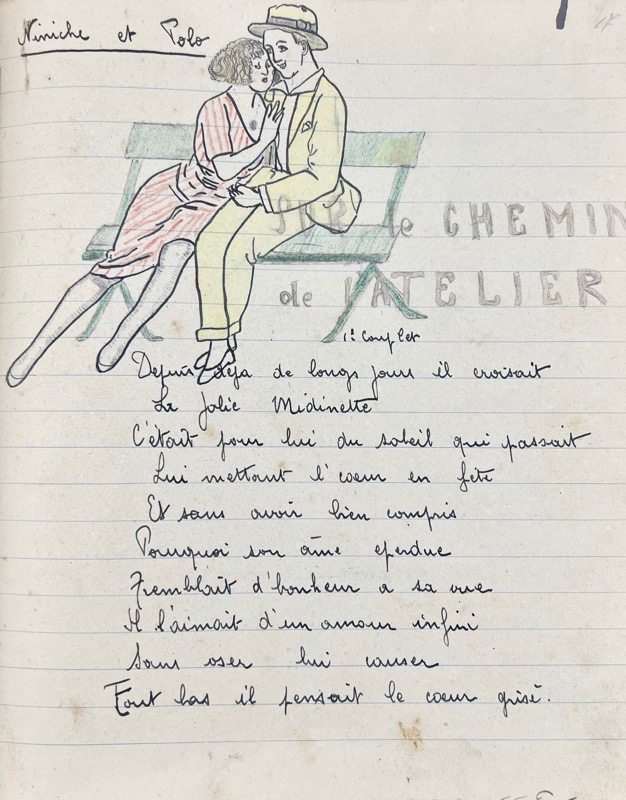 Niniche et Polo
SUR le CHEMIN
de l'ATELIER
1º Couplet
Depuis deja de longs jours il croisait
La Jolie Midinette
C'était pour lui du soleil qui passait
Lui mettant l'coeur en fête
Et sans avoir bien compris
Pourquoi son âme eperdue
Tremblait d'bonheur a sa vue
Il l'aimait d'un amour infini
Sans oser lui causer
Tout bas il pensait le coeur grisé.